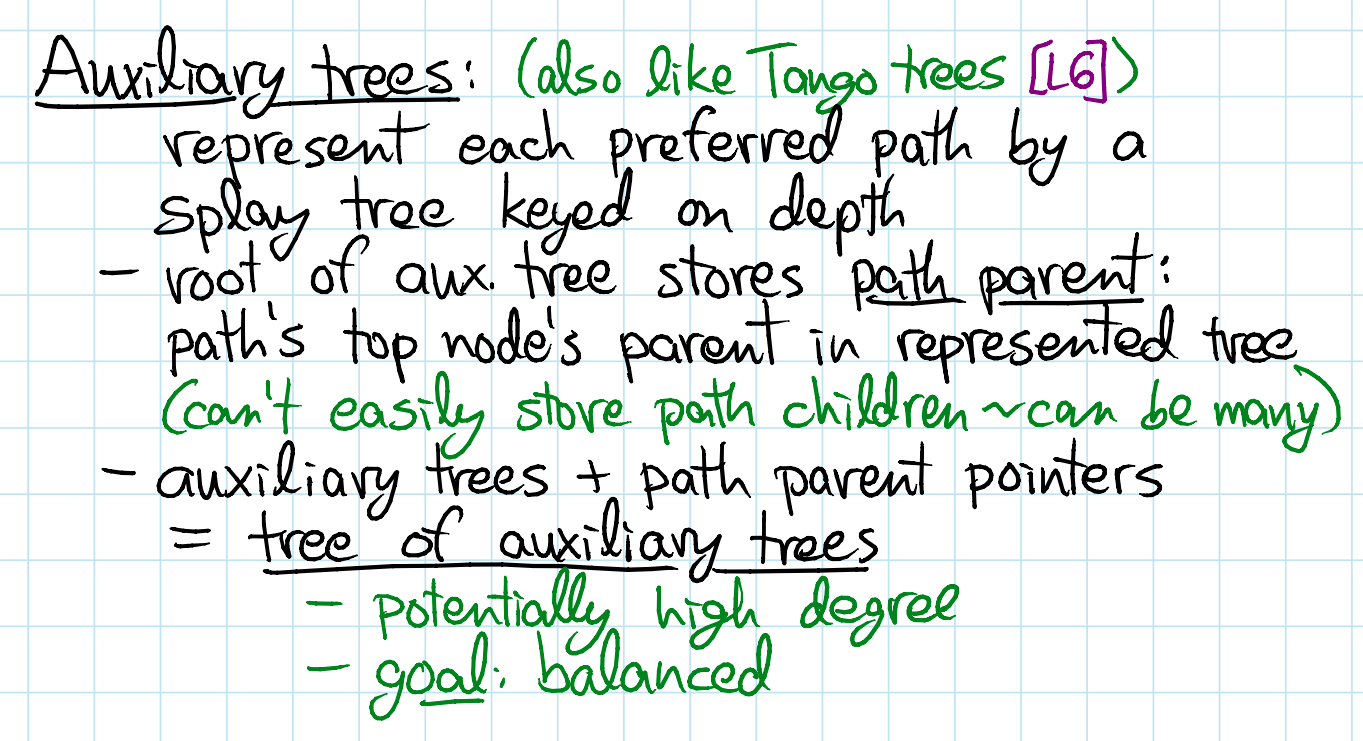 Auxiliary trees: (also like Tango trees [L6])
represent each preferred path by a
splay tree keyed on depth
- root of aux. tree stores path parent:
path's top node's parent in represented tree
(can't easily store path children ~ can be many)
- auxiliary trees + path parent pointers
= tree of auxiliary trees
- potentially high degree
- goal: balanced